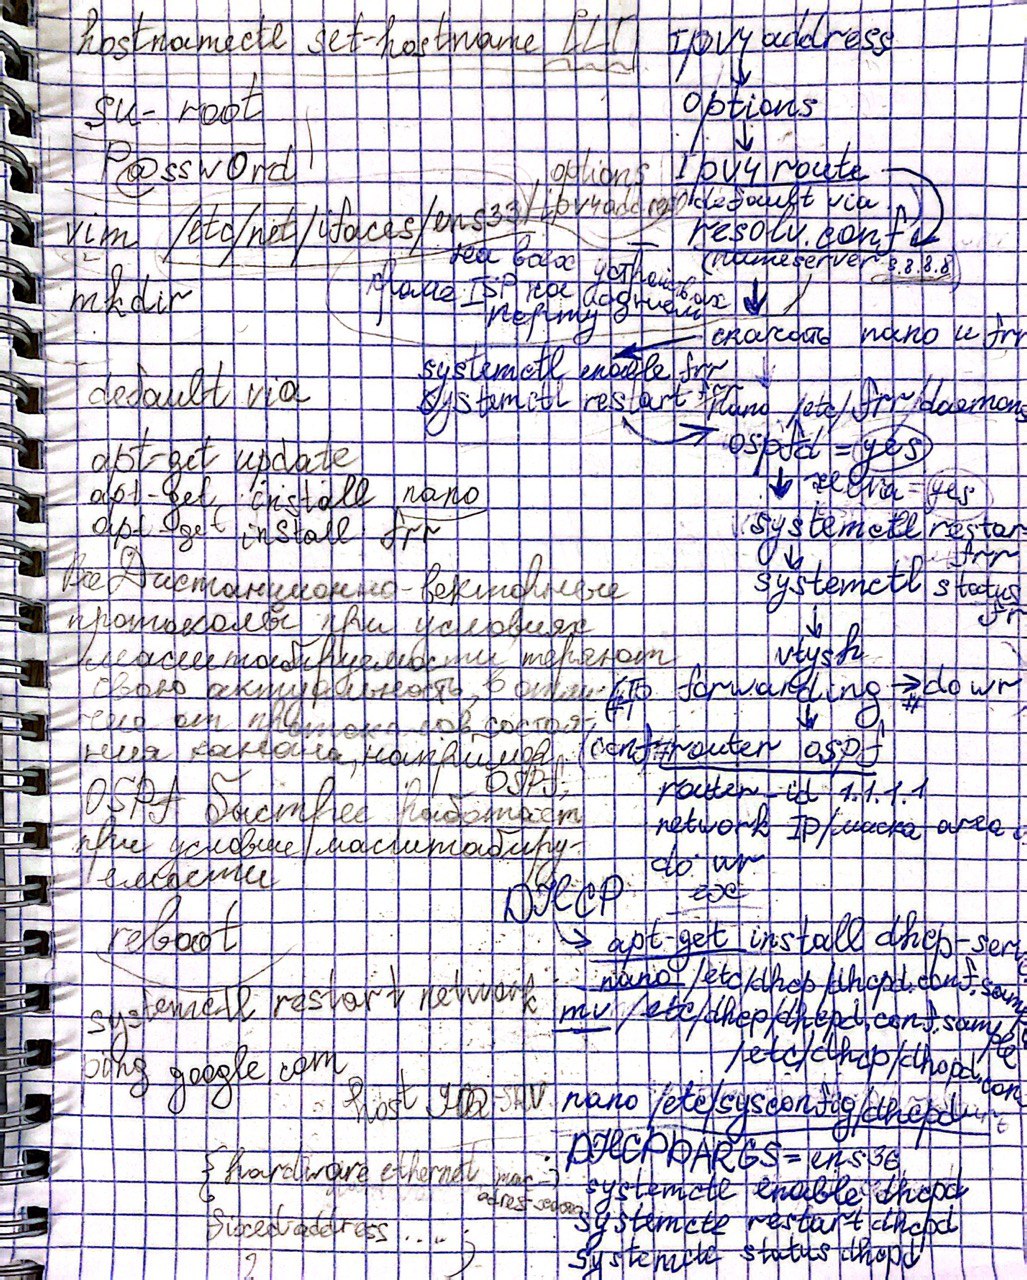 hostnamectl set-hostname
su- root
P@ssw0rd
vim /etc/net/ifaces/ens33/ipv4address
options
на всех устройствах
кроме ISP
mkdir
default via
apt-get update
apt-get install nano
apt-get install frr
Все Дистанционно-векторные
протоколы при условиях
масштабируемости теряют
свою актуальность, в отли-
чие от протоколов состоя-
ния канала, например
OSPF,
OSPF быстрее работает
при условие/масштабиру-
емости
reboot
systemctl restart network
ping google.com
host
{hardware ethernet
fixed address ....;
Ipv4 address
↓
options
↓
Ipv4 route
default via
resolv.conf
(nameserver 8.8.8.8)
↓
скачать nano и frr
systemctl enable frr
systemctl restart frr
nano /etc/frr/daemons
ospfd = yes
↓
= yes
systemctl restar
frr
↓
systemctl status
fr
↓
vtysh
↓
forwarding → do wr
↓
(conf# router ospf
router-id 1.1.1.1
network IP/маска area
do wr
ex
DHCP
→ apt-get install dhcp-serv
nano /etc/dhcp/dhcpd.conf.sam
mv /etc/dhcp/dhcpd.conf.sample
/etc/dhcp/dhcpd.con
nano /etc/sysconfig/dhcpd
DHCPDARGS=ens36
systemctl enable dhcpd
systemctl restart dhcpd
systemctl status dhcpd